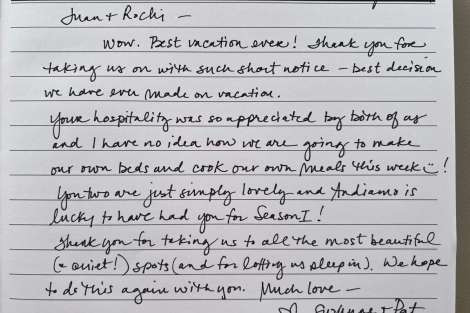 Juan + Rochi —
Wow. Best vacation ever! Thank you for
taking us on with such short notice – best decision
we have ever made on vacation.
Your hospitality was so appreciated by both of us
and I have no idea how we are going to make
our own beds and cook our own meals this week!
You two are just simply lovely and Andiamo is
lucky to have had you for Season I!
Thank you for taking us to all the most beautiful
(+ quiet!) spots (and for letting us sleep in). We hope
to do this again with you. Much love —
+ Pat